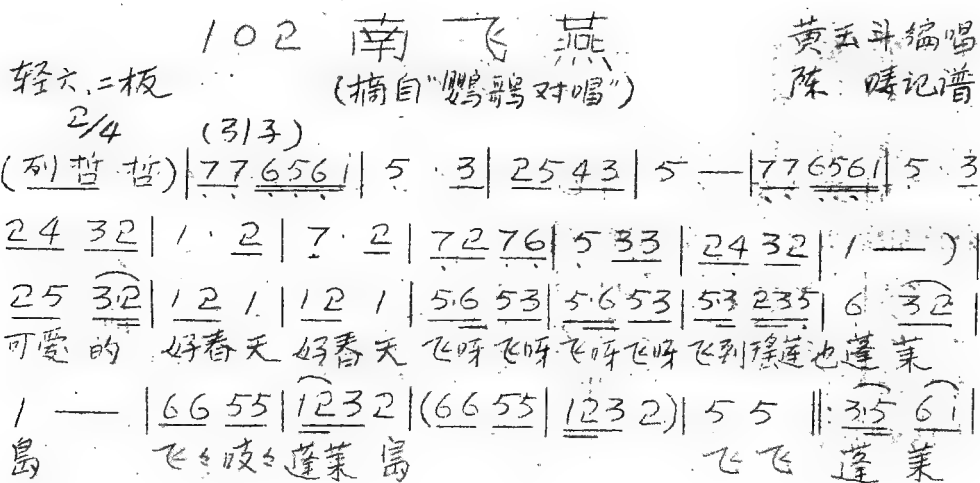 102 南飞燕
黄玉斗编唱
轻六.二板
(摘自"鹦鹉对唱")
陈 记谱
2/4 (引子)
(列哲哲)|77 6561|5·3|25 43|5 —|77 6561|5·3
24 32|1·2|7·2|72 76|5 33|24 32|1 —)|
25 32|12 1|12 1|5·6 53|5·6 53|53 235|6 32|
可爱的 好春天 好春天 飞呀飞呀飞呀飞呀飞到 也蓬莱
1 —|66 55|1232|(66 55|1232)|55‖:3·5 61|
岛 飞々吱々蓬莱岛 飞飞 蓬莱